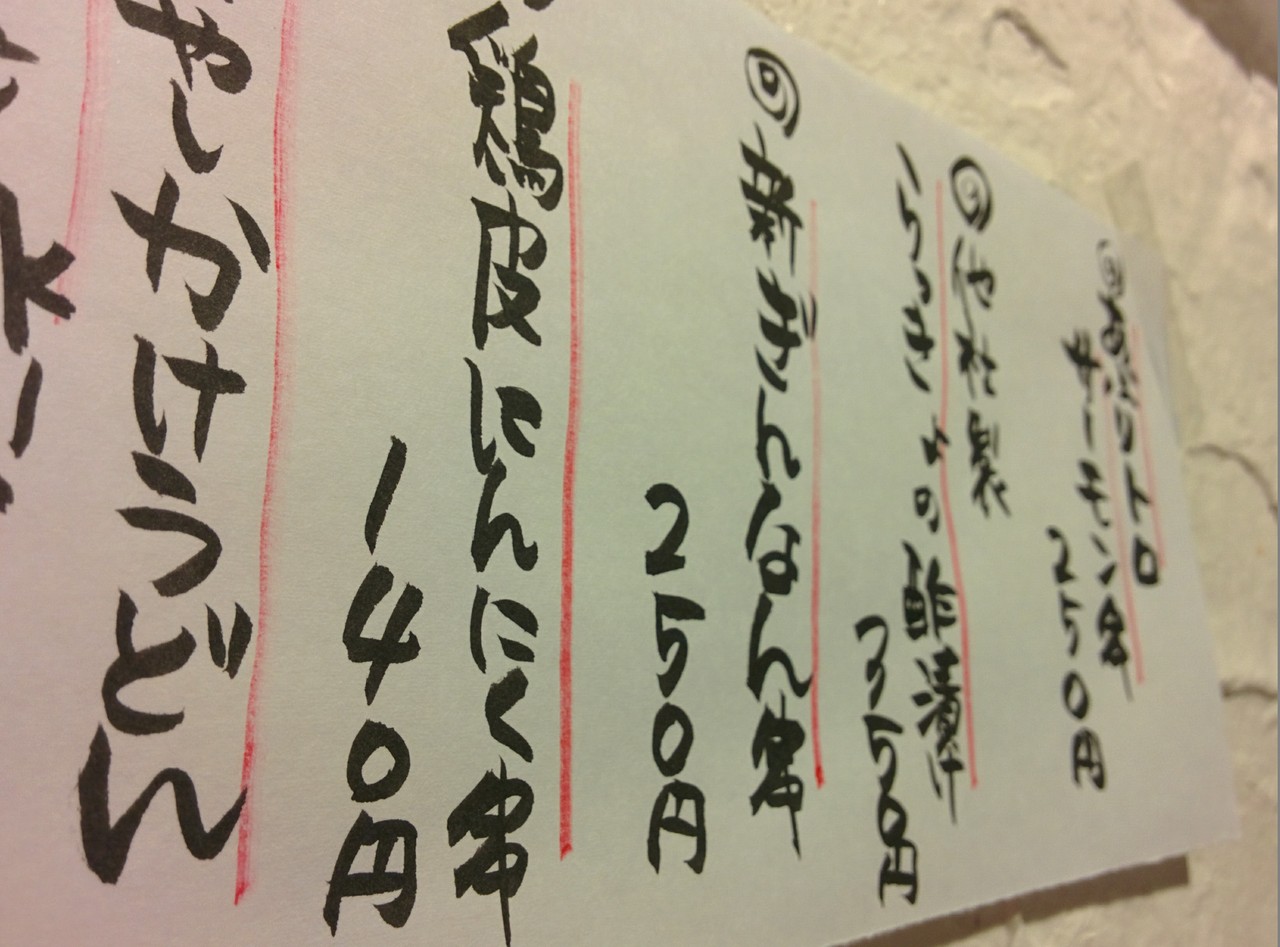 ◎あぶりトロ
サーモン串
250円
◎
らっきょの酢漬け
250円
◎新ぎんなん串
250円
鶏皮にんにく串
140円
やしかけうどん